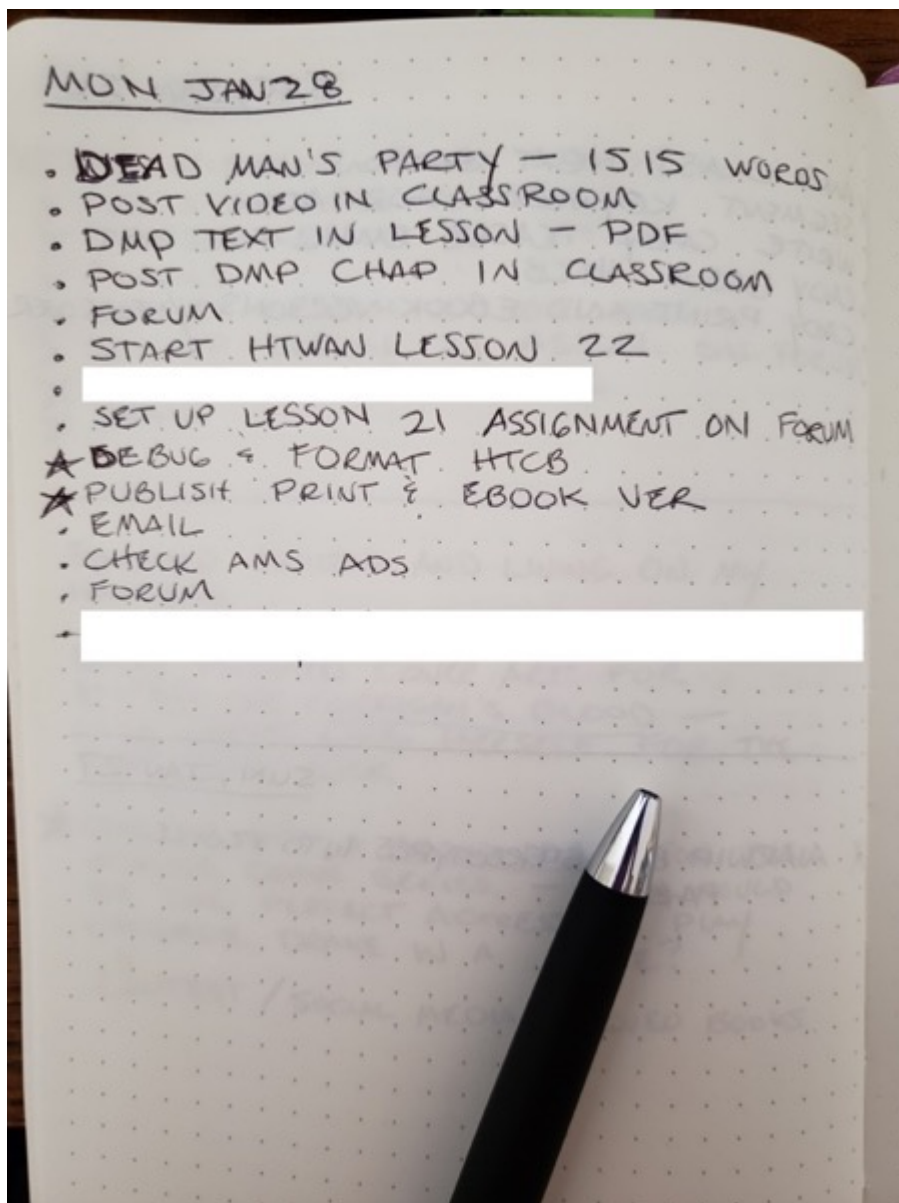 MON JAN 28
• DEAD MAN'S PARTY — 1515 WORDS
• POST VIDEO IN CLASSROOM
• DMP TEXT IN LESSON — PDF
• POST DMP CHAP IN CLASSROOM
• FORUM
• START HTWAN LESSON 22
•
• SET UP LESSON 21 ASSIGNMENT ON FORUM
★ DEBUG & FORMAT HTCB
★ PUBLISH PRINT & EBOOK VER
• EMAIL
• CHECK AMS ADS
• FORUM
•